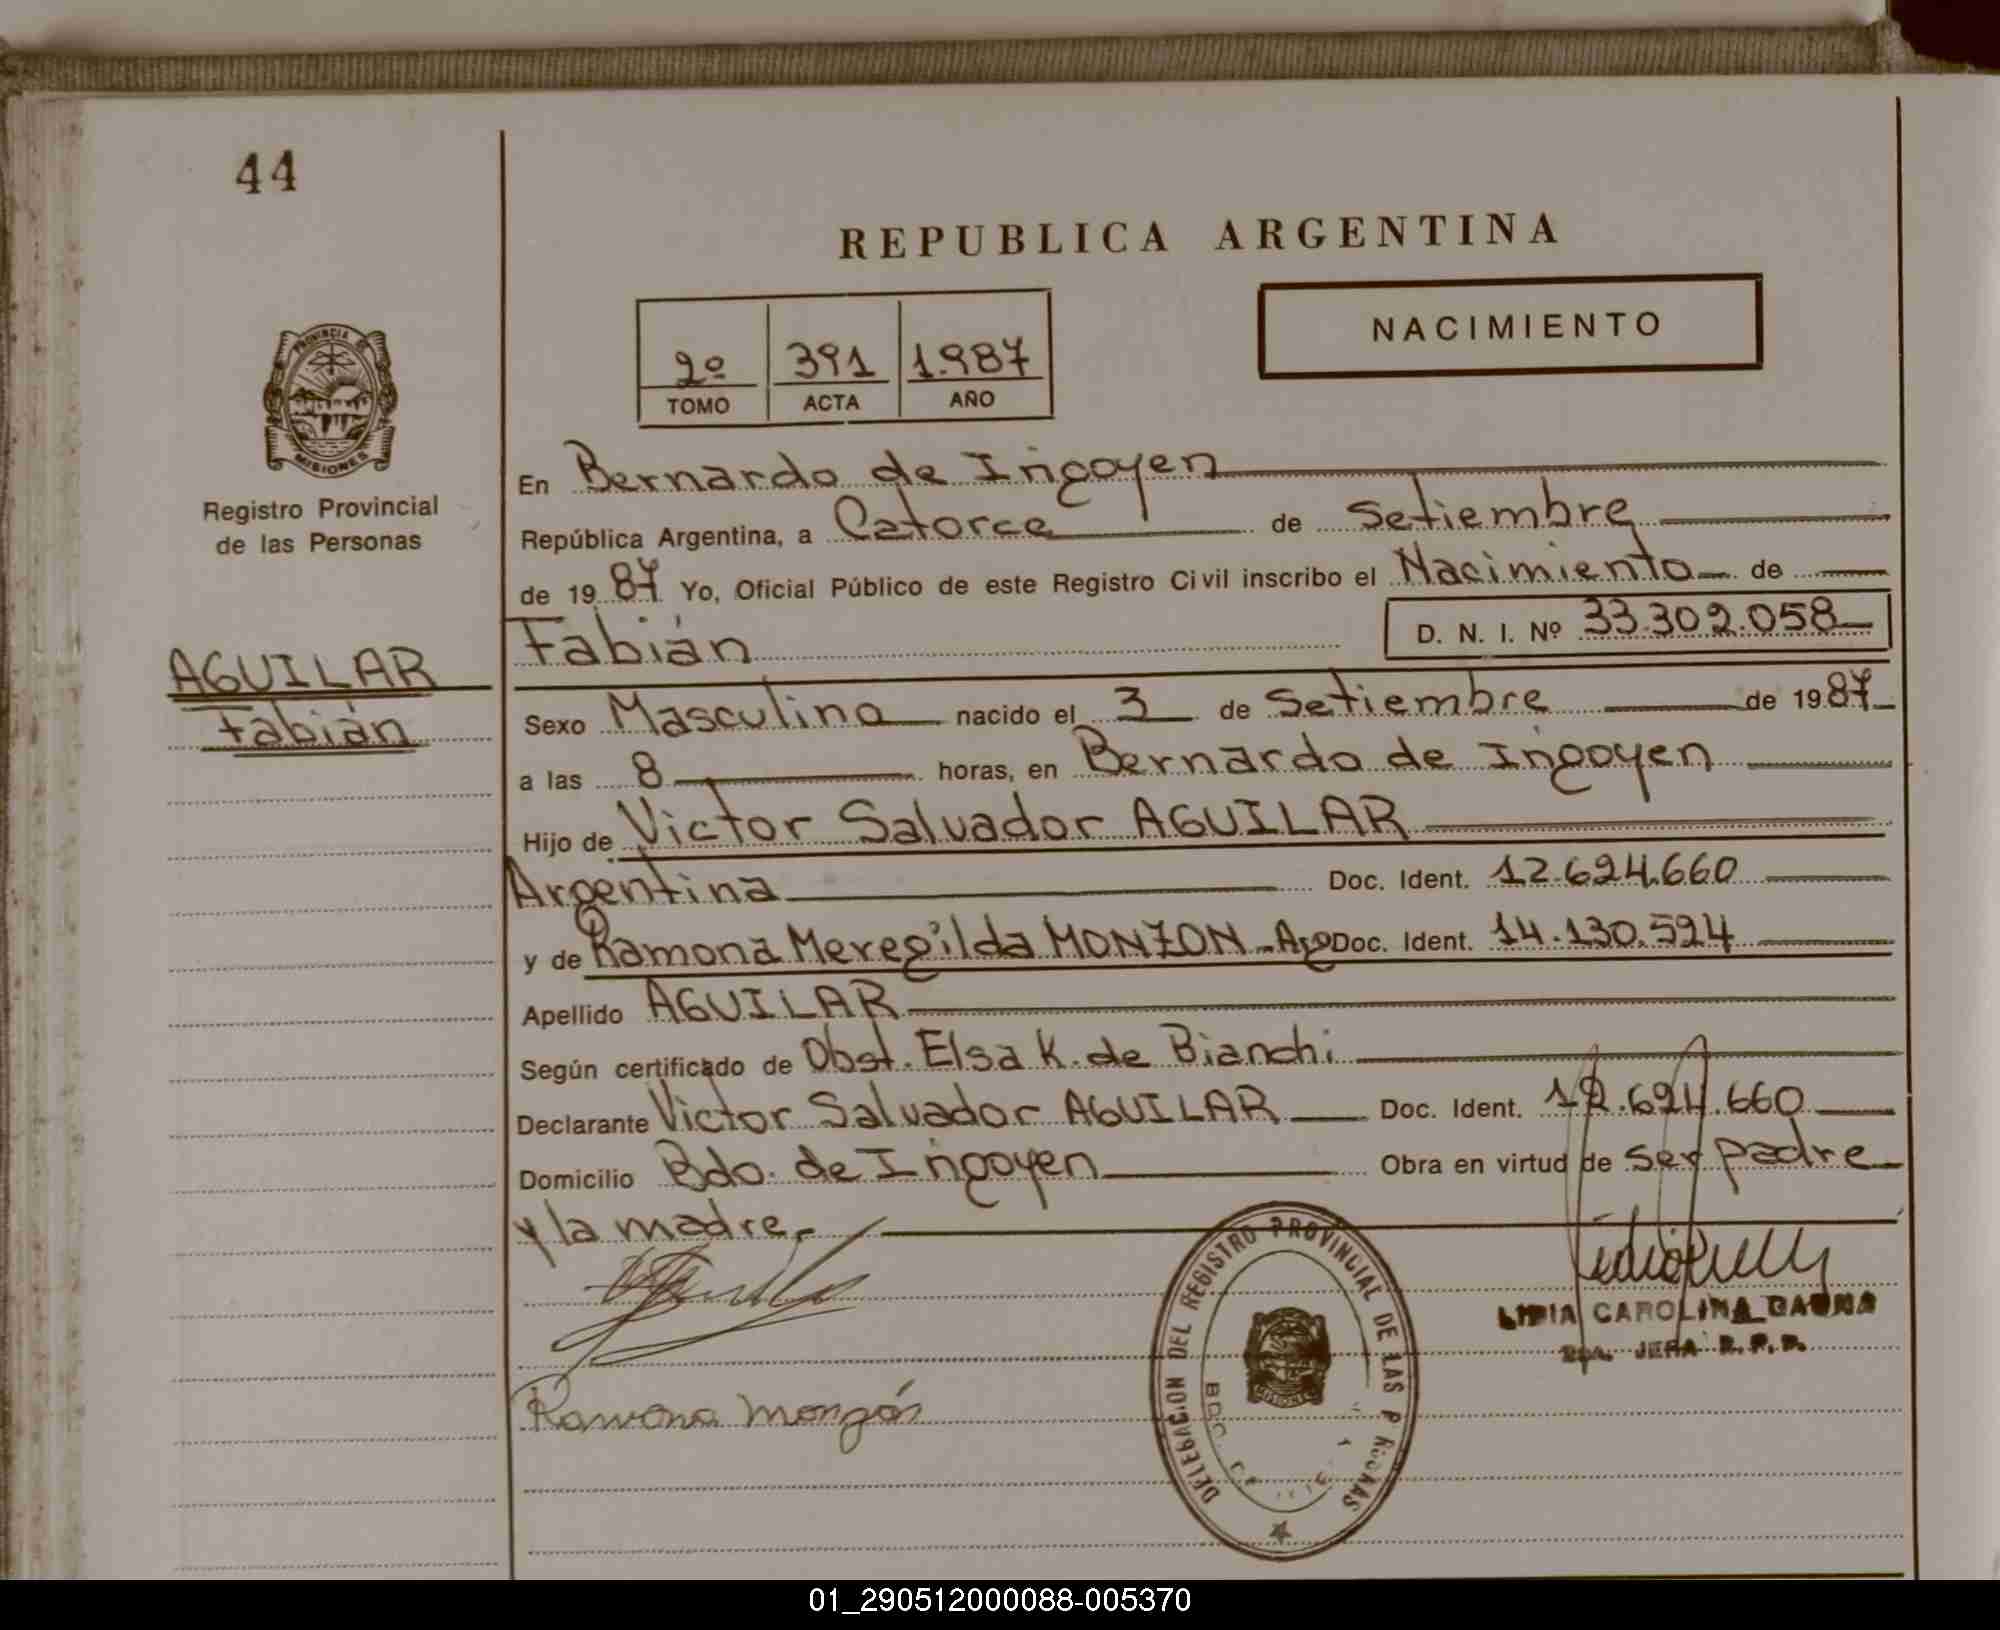 44
REPUBLICA ARGENTINA
NACIMIENTO
2º 391 1.987
TOMO ACTA AÑO
PROVINCIA DE
MISIONES
Registro Provincial
de las Personas
AGUILAR
Fabián
En Bernardo de Irigoyen
República Argentina, a Catorce de Setiembre
de 1987 Yo, Oficial Público de este Registro Civil inscribo el Nacimiento de
Fabián D. N. I. Nº 33.302.058
Sexo Masculino nacido el 3 de Setiembre de 1987
a las 8 horas, en Bernardo de Irigoyen
Hijo de Victor Salvador AGUILAR
Argentina Doc. Ident. 12.624.660
y de Ramona Meregilda MONZON - Arg Doc. Ident. 14.130.524
Apellido AGUILAR
Según certificado de Obst. Elsa K. de Bianchi
Declarante Victor Salvador AGUILAR Doc. Ident. 12.624.660
Domicilio Bdo. de Irigoyen Obra en virtud de ser padre
y la madre.-
LIDIA CAROLINA GAUNA
JEFA R. P. P.
Ramona Monzón
DELEGACION DEL REGISTRO PROVINCIAL DE LAS PERSONAS
MISIONES
BDO. DE
01_290512000088-005370